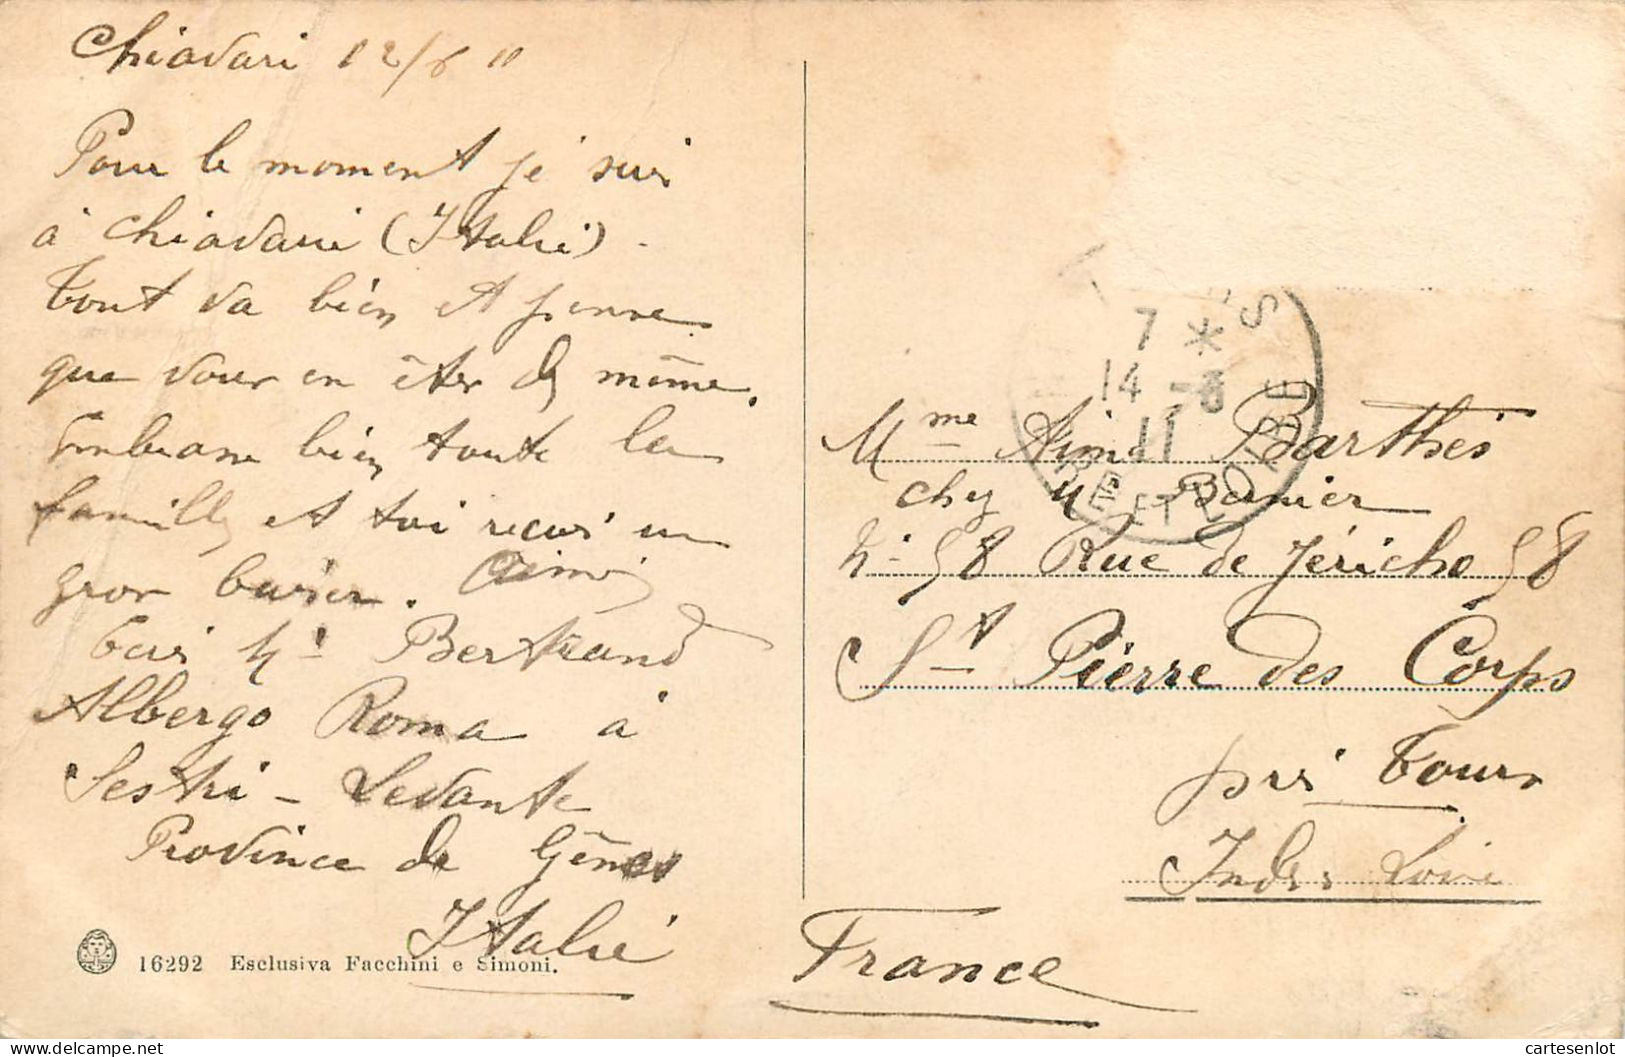 Chiavari 12/6 11
Pour le moment je suis
à Chiavari (Italie).
tout va bien et pense
que vous en êtes de même.
Embrasse bien toute la
famille et toi reçois un
gros baiser. Aimé
Bertrand
Albergo Roma à
Sestri-Levante
Province de Gênes
Italie
16292 Esclusiva Facchini e Simoni.
7 *
14 -6
11
INDRE ET LOIRE
Mme Aimé Barthes
chez M Bernier
No 58 Rue de Jéricho 58
St Pierre des Corps
près Tours
Indre Loire
France
cartesenlot